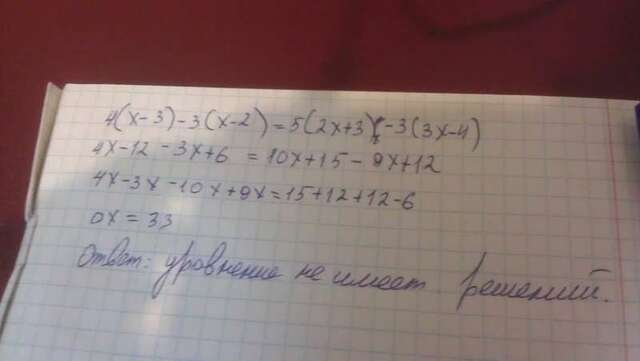 4(x-3)-3(x-2)=5(2x+3)-3(3x-4)
4x-12-3x+6=10x+15-9x+12
4x-3x-10x+9x=15+12+12-6
0x=33
Ответ: уравнение не имеет решений.